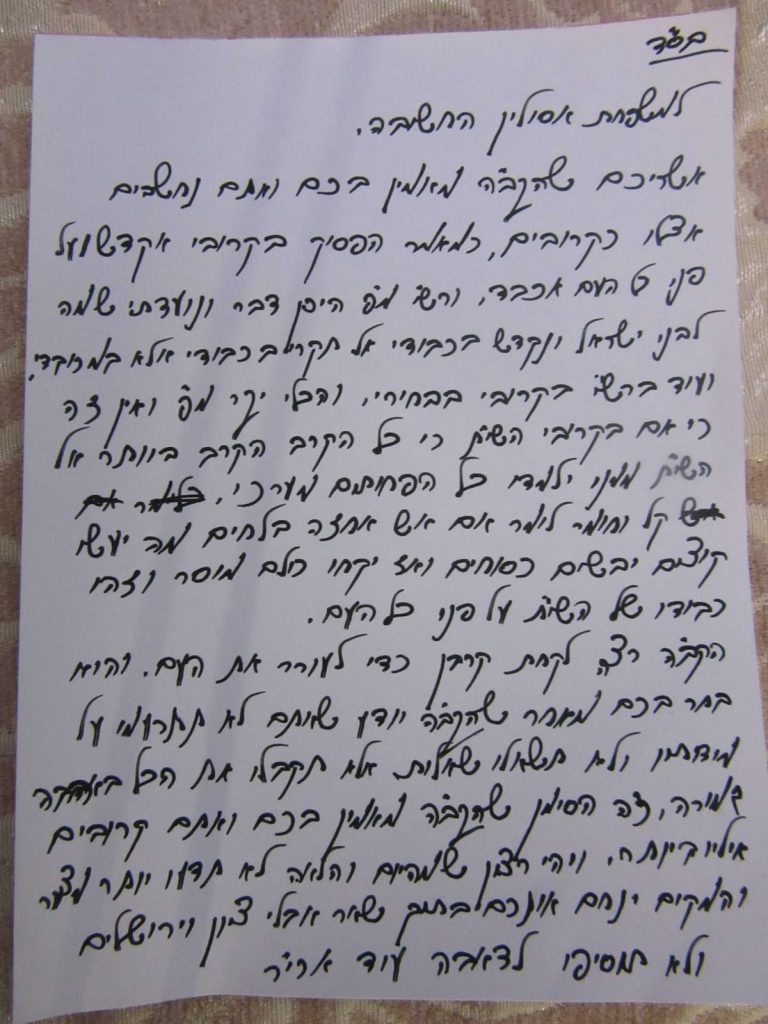 בס"ד
למשפחת אסולין החשובה.
אשריכם שהקב"ה מאמין בכם ואתם נחשבים
אצלו כקרובים, כמאמר הפסוק בקרובי אקדש ועל
פני כל העם אכבד, ורש"י מפ' היכן דבר ונועדתי שמה
לבני ישראל ונקדש בכבודי אל תקרי בכבודי אלא במכובדי.
ועוד ברש"י בקרובי בבחירי, והכלי יקר מפ' ואין זה
כי אם בקרובי השי"ת כי כל הקרב הקרב ביותר אל
השי"ת ממני ילמדו כל הפחותים מערכי,
קל וחומר לימר אם אש אחזה בלחים מה יעשו
קוצים יבשים כסוחים ואז יקחו כולם מוסר וזהו
כבודו של השי"ת על פני כל העם.
הקב"ה רצה לקחת קרבן כדי לעורר את העם. והוא
בחר בכם מאחר שהקב"ה יודע שאתם לא תתרעמו על
מידותיו ולא תשאלו שאלות אלא תקבלו את הכל באהבה
גמורה, זה הסימן שהקב"ה מאמין בכם ואתם קרובים
אליו ביותר. ויהי רצון שמהיום והלאה לא תדעו יותר מצער
והמקום ינחם אותכם בתוך שאר אבלי ציון וירושלים
ולא תוסיפו לדאבה עוד אכי"ר